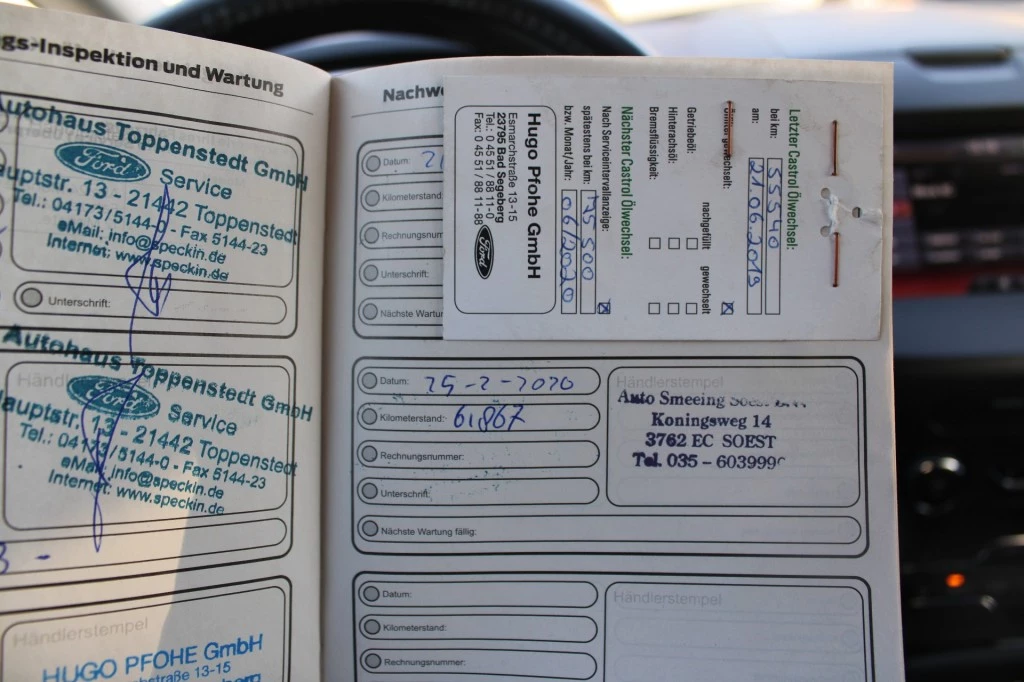 gs-Inspektion und Wartung
Autohaus Toppenstedt GmbH
Ford
Service
auptstr. 13 - 21442 Toppenstedt
Tel.: 04173/5144-0 - Fax 5144-23
eMail: info@speckin.de
Internet: www.speckin.de
Unterschrift:
Autohaus Toppenstedt GmbH
Ford
Service
auptstr. 13 - 21442 Toppenstedt
Tel.: 04173/5144-0 - Fax 5144-23
eMail: info@speckin.de
Internet: www.speckin.de
3 -
Händlerstempel
HUGO PFOHE GmbH
straße 13-15
Nachwe
Datum: 21
Kilometerstand:
Rechnungsnum
Unterschrift:
Nächste Wartun
Letzter Castrol Ölwechsel:
bei km: 55540
am: 21.06.2019
nachgefüllt gewechselt
Getriebeöl:
Hinterachsöl:
Bremsflüssigkeit:
Nächster Castrol Ölwechsel:
Nach Serviceintervallanzeige:
spätestens bei km:
bzw. Monat/Jahr: 06/2020
Hugo Pfohe GmbH
Esmarchstraße 13-15
23795 Bad Segeberg
Tel.: 0 45 51 / 88 11-0
Fax: 0 45 51 / 88 11-88
Ford
Datum: 25-2-2020
Kilometerstand: 61867
Rechnungsnummer:
Unterschrift:
Nächste Wartung fällig:
Händlerstempel
Auto Smeeing Soest
Koningsweg 14
3762 EC SOEST
Tel. 035 - 603999
Datum:
Kilometerstand:
Rechnungsnummer:
Händlerstempel